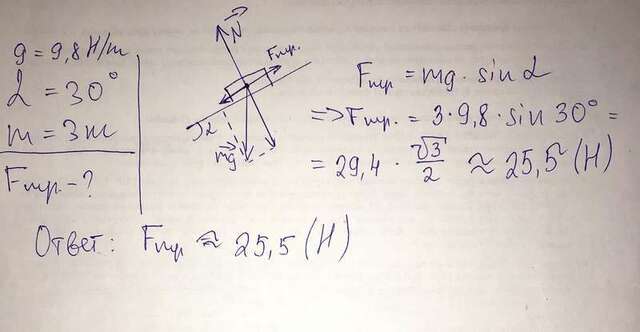 g = 9,8 Н/m
α = 30°
m = 3m
Fтр. - ?
N
Fтр.
α
mg
Fтр = mg · sin α
=> Fтр. = 3 · 9,8 · sin 30° =
= 29,4 · √3/2 ≈ 25,5 (Н)
Ответ: Fтр ≈ 25,5 (Н)